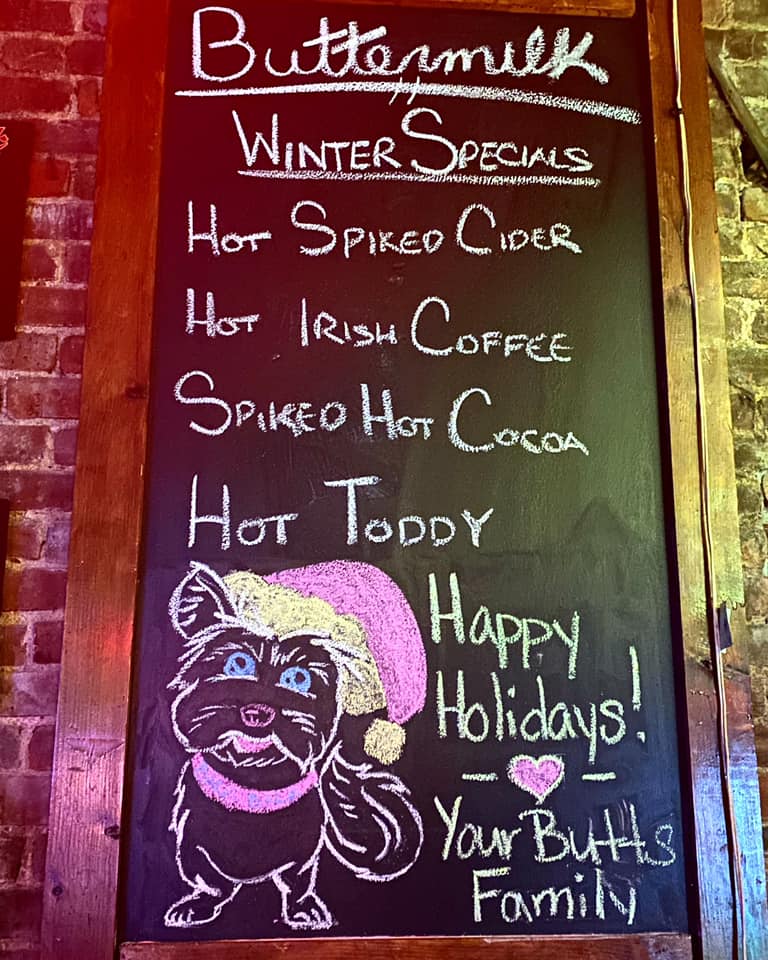 Buttermilk
WINTER SPECIALS
HOT SPIKED CIDER
HOT IRISH COFFEE
SPIKED HOT COCOA
HOT TODDY
Happy
Holidays!
Your Butts
Family